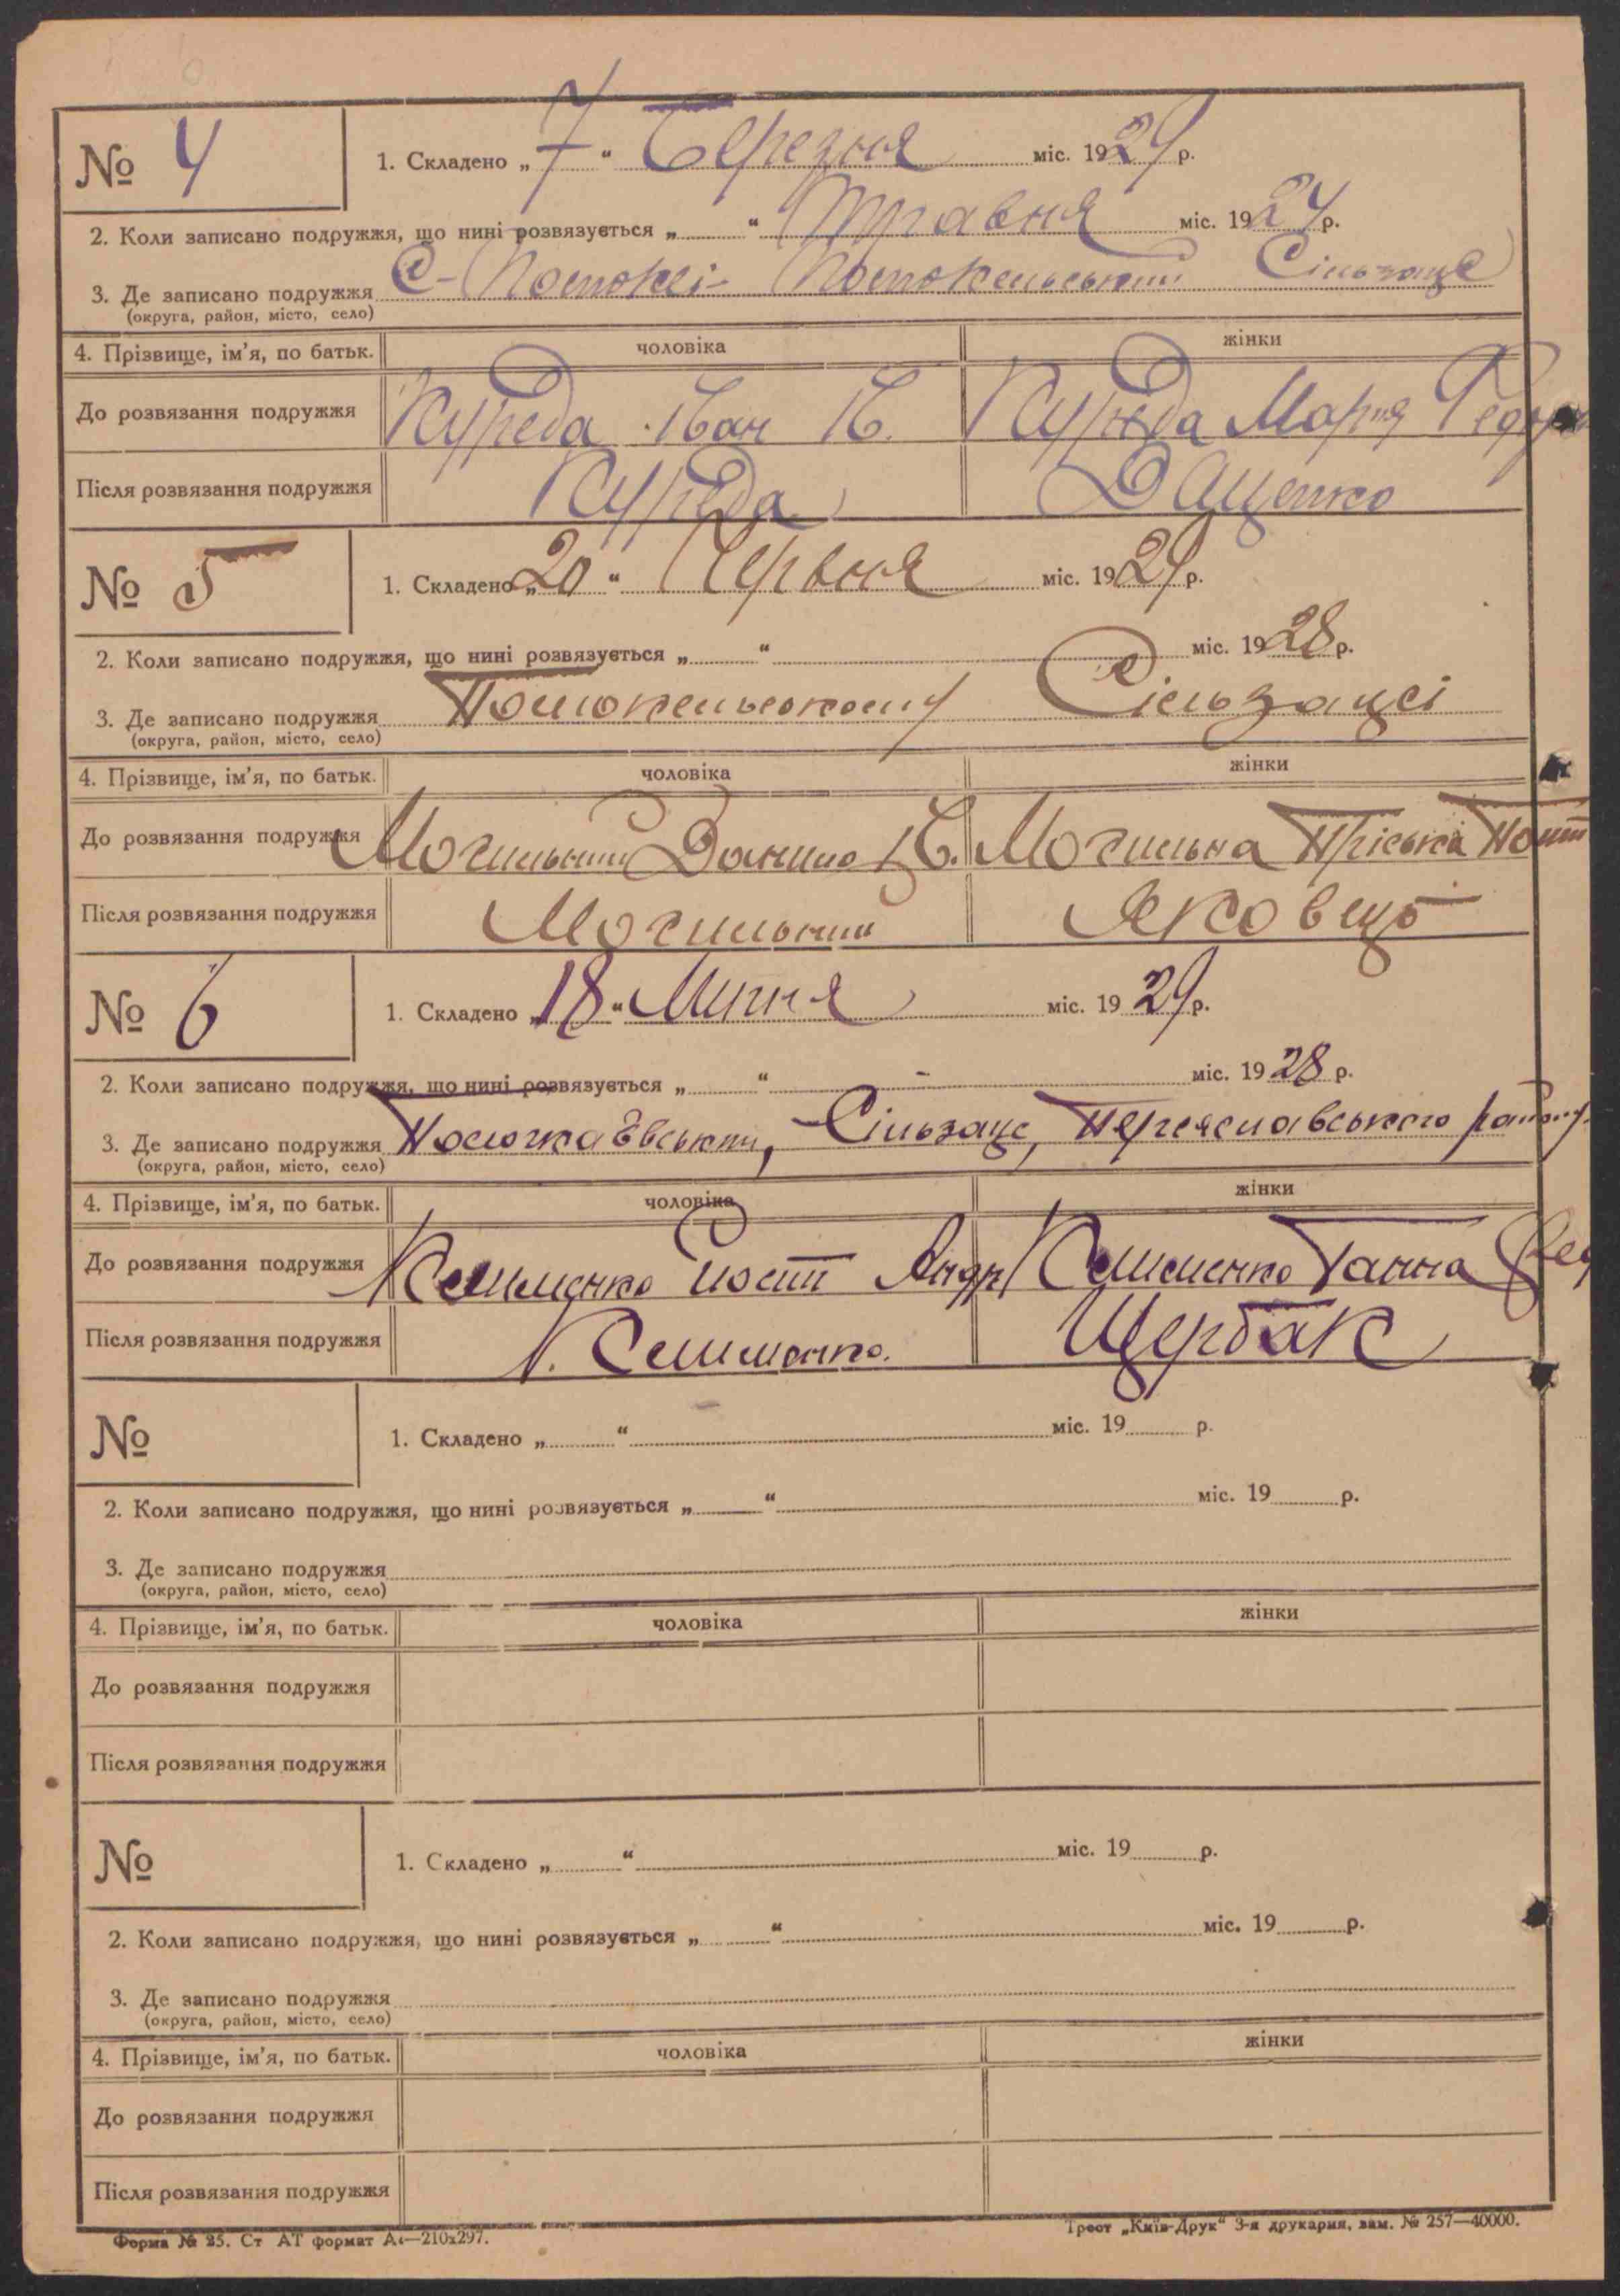 № 4 1. Складено „ 7 “ Березня міс. 1929 р.
2. Коли записано подружжя, що нині розвязується „ “ Травня міс. 1924 р.
3. Де записано подружжя С-
(округа, район, місто, село)
4. Прізвище, ім’я, по батьк. чоловіка жінки
До розвязання подружжя Куреда Іван Куреда Мария Федор
Після розвязання подружжя Куреда Даценко
№ 5 1. Складено „ 20 “ Червня міс. 1929 р.
2. Коли записано подружжя, що нині розвязується „ “ міс. 1928 р.
3. Де записано подружжя Сільзагсі
(округа, район, місто, село)
4. Прізвище, ім’я, по батьк. чоловіка жінки
До розвязання подружжя Могильний Данило Могильна Пріська
Після розвязання подружжя Могильний
№ 6 1. Складено „ 18 “ Липня міс. 1929 р.
2. Коли записано подружжя, що нині розвязується „ “ - міс. 1928 р.
3. Де записано подружжя Сільзагс, Переяславського району
(округа, район, місто, село)
4. Прізвище, ім’я, по батьк. чоловіка жінки
До розвязання подружжя Клименко Йосип Андр Клименко Ганна Фед
Після розвязання подружжя Клименко. Щербак
№ 1. Складено „ “ міс. 19 р.
2. Коли записано подружжя, що нині розвязується „ “ міс. 19 р.
3. Де записано подружжя
(округа, район, місто, село)
4. Прізвище, ім’я, по батьк. чоловіка жінки
До розвязання подружжя
Після розвязання подружжя
№ 1. Складено „ “ міс. 19 р.
2. Коли записано подружжя, що нині розвязується „ “ міс. 19 р.
3. Де записано подружжя
(округа, район, місто, село)
4. Прізвище, ім’я, по батьк. чоловіка жінки
До розвязання подружжя
Після розвязання подружжя
Форма № 25. Ст АТ формат А4—210x297. Трест „Київ-Друк“ 3-я друкарня, зам. № 257—40000.